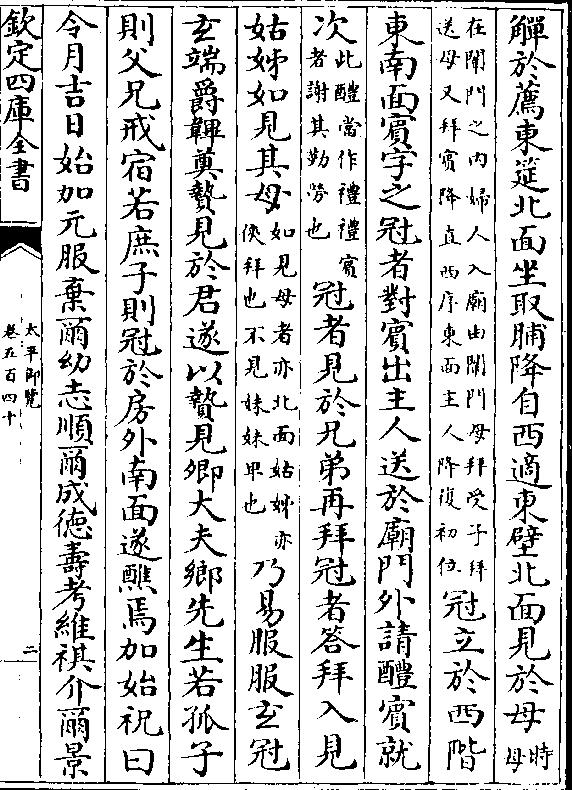 觶於薦東筵北面坐取脯降自西適東壁北面見於母時母
在闈門之内婦人入廟由闈門母拜受子拜
送母又拜賓降直西序東面主人降復初位
冠立於西階
東南面賓字之冠者對賓出主人送於廟門外請醴賓就
次此醴當作禮禮賓
者謝其勤勞也
冠者見於兄弟再拜冠者答拜入見
姑姊如見其母如見母者亦北面姑姊亦
俠拜也不見妹妹卑也
乃易服服玄冠
玄端爵韠奠贄見於君遂以贄見卿大夫鄉先生若孤子
則父兄戒宿若庶子則冠於房外南面遂醮焉加始祝曰
令月吉日始加元服棄爾幼志順爾成德壽考維祺介爾景
欽定四庫全書
太平御覽
卷五百四十
二